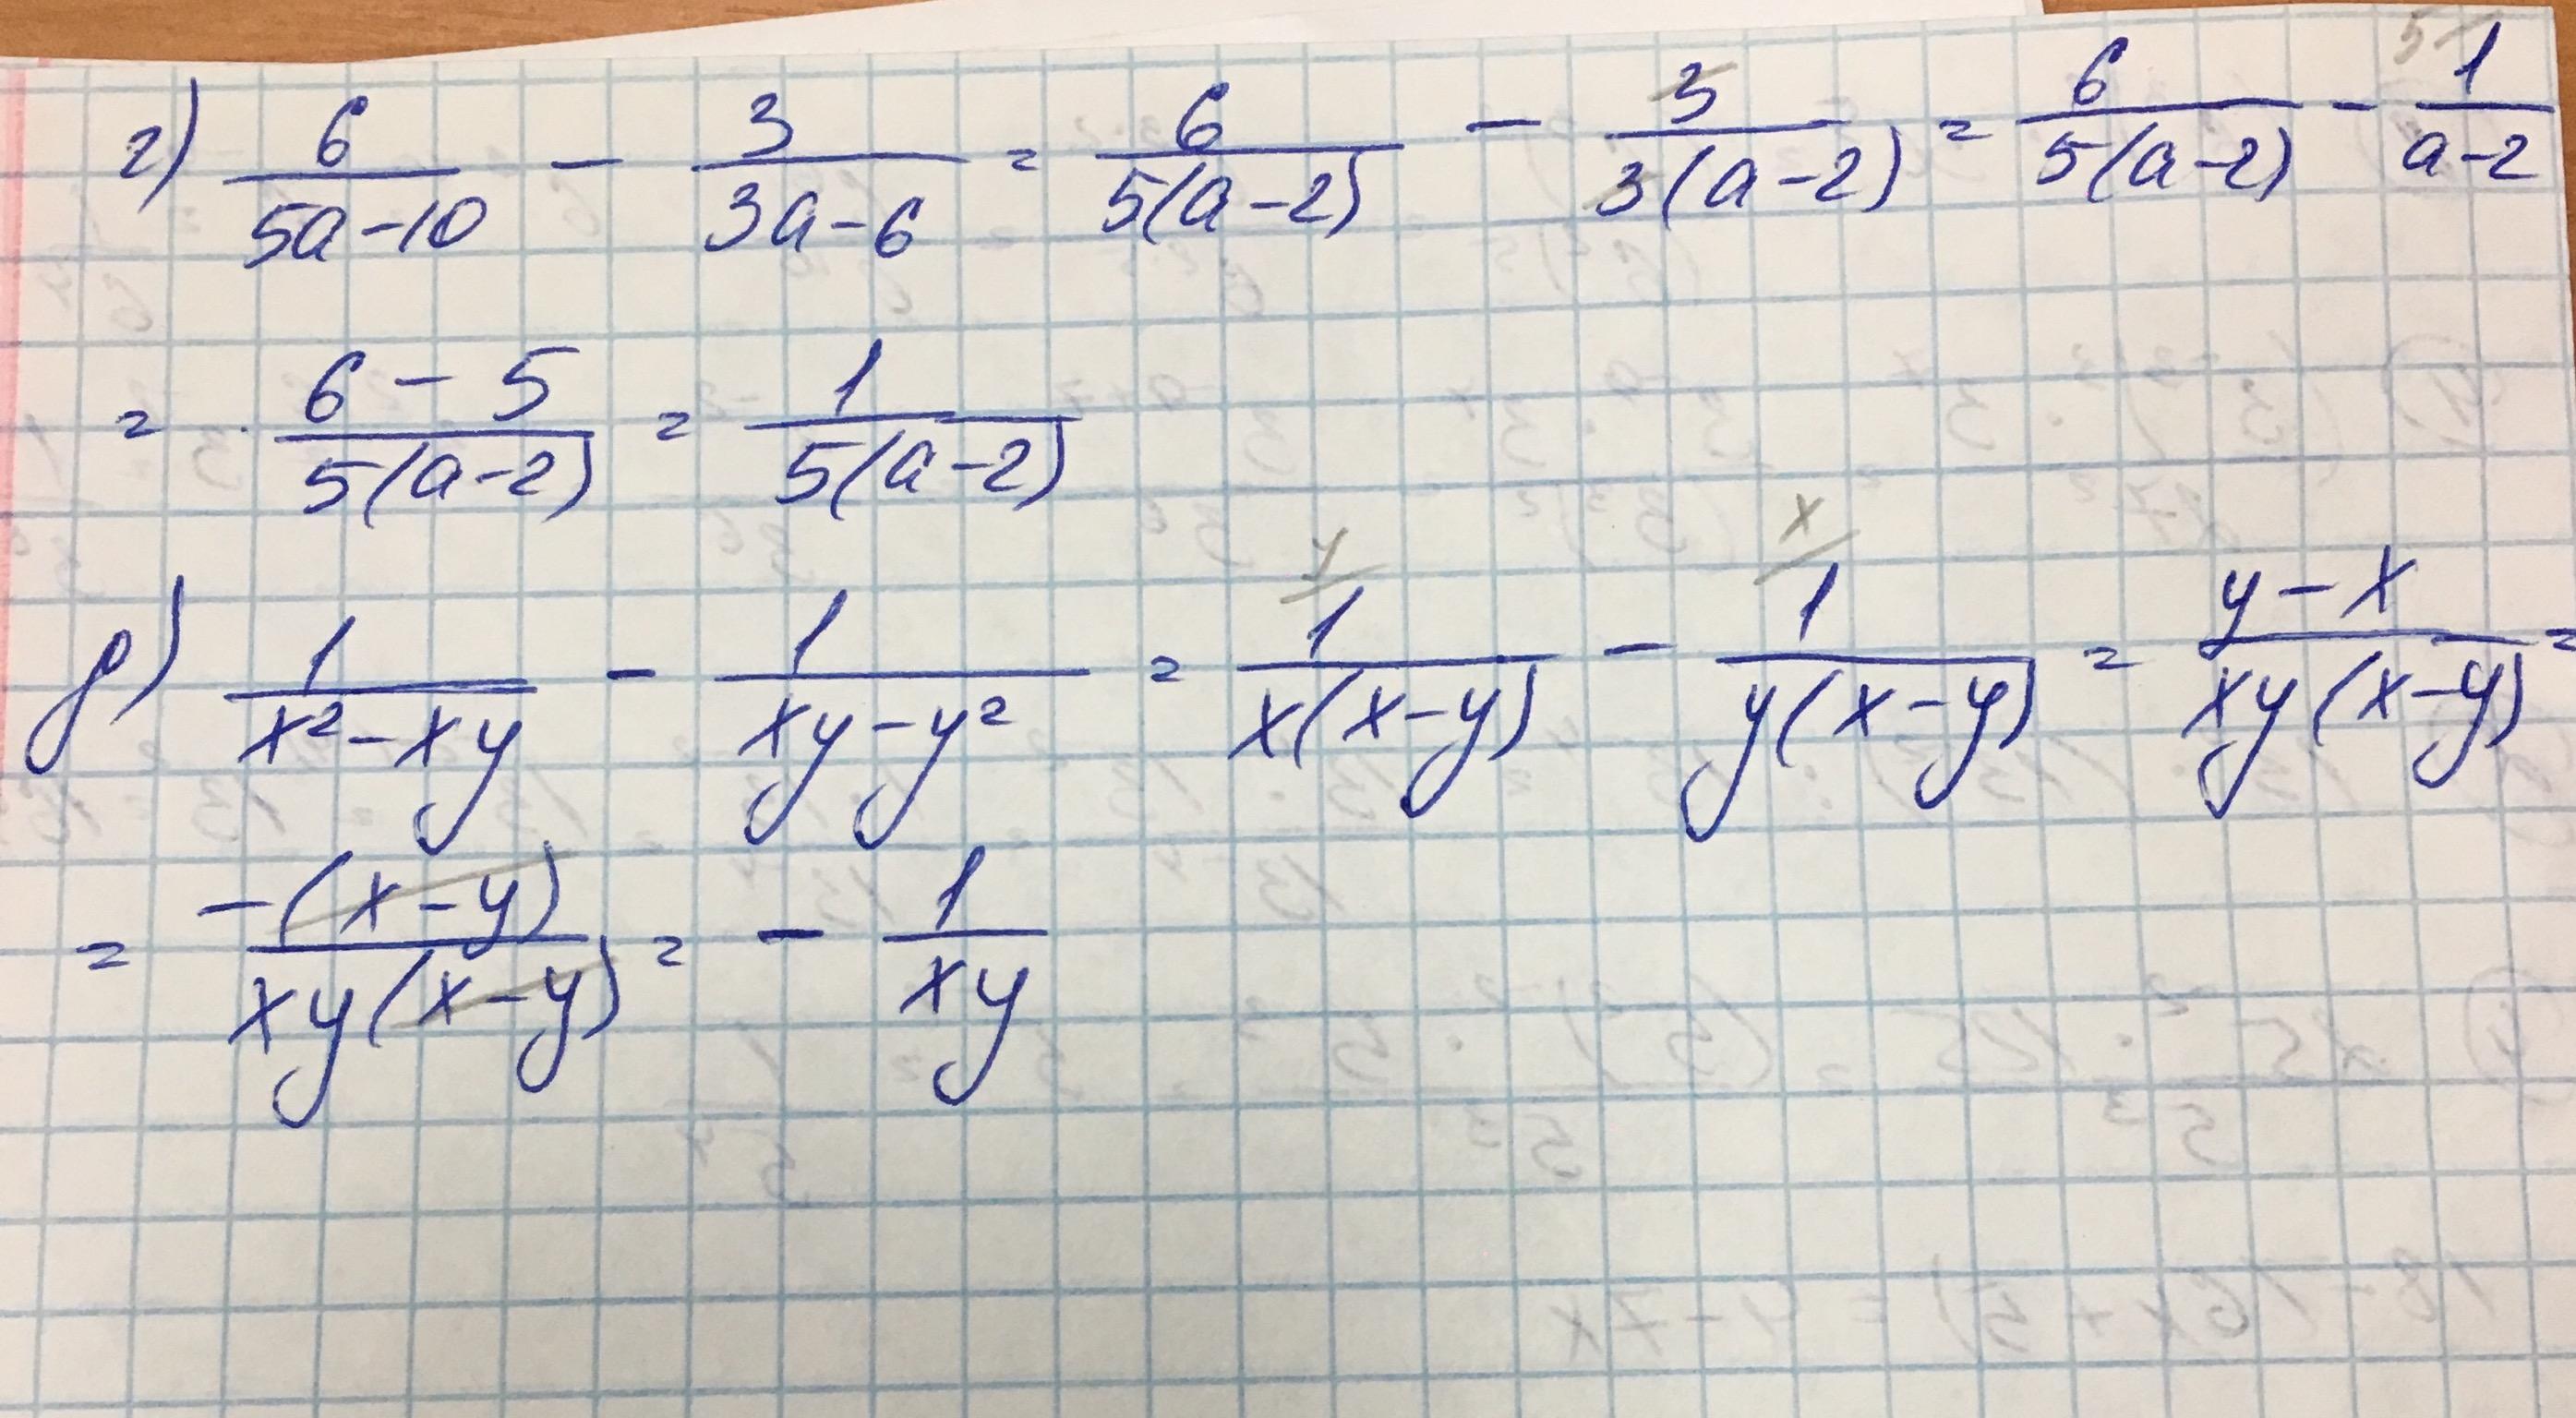 г) 6/(5a-10) - 3/(3a-6) = 6/(5(a-2)) - 3/(3(a-2)) = 6/(5(a-2)) - 5/ 1/(a-2)
= (6-5)/(5(a-2)) = 1/(5(a-2))
д) 1/(x²-xy) - 1/(xy-y²) = y/ 1/(x(x-y)) - x/ 1/(y(x-y)) = (y-x)/(xy(x-y)) =
= -(x-y)/(xy(x-y)) = - 1/(xy)